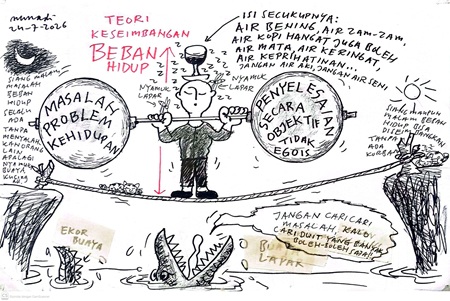 24-7-2026
TEORI
KESEIMBANGAN
BEBAN
HIDUP
ISI SECUKUPNYA:
AIR BENING, AIR ZAM-ZAM,
AIR KOPI HANGAT JUGA BOLEH
AIR MATA, AIR KERINGAT,
AIR KEPRIHATINAN...
JANGAN AIR AKI, JANGAN AIR SENI
NYAMUK
LAPAR
NYAMUK
LAPAR
SIANG MALAM
MASALAH
BEBAN
HIDUP
SELALU
ADA
TANPA
MENYALAHKAN
ORANG
LAIN
APALAGI
NYAMUK
BUAYA
MASALAH
PROBLEM
KEHIDUPAN
PENYELESAIAN
SECARA
OBJEKTIF
TIDAK
EGOIS
SIANG MAUPUN
MALAM BEBAN
HIDUP BISA
TANPA
ADA
KORBAN
EKOR
BUAYA
JANGAN CARI CARI
MASALAH, KALO
CARI DUIT YANG BANYAK
BOLEH-BOLEH SAJA!!
LAPAR